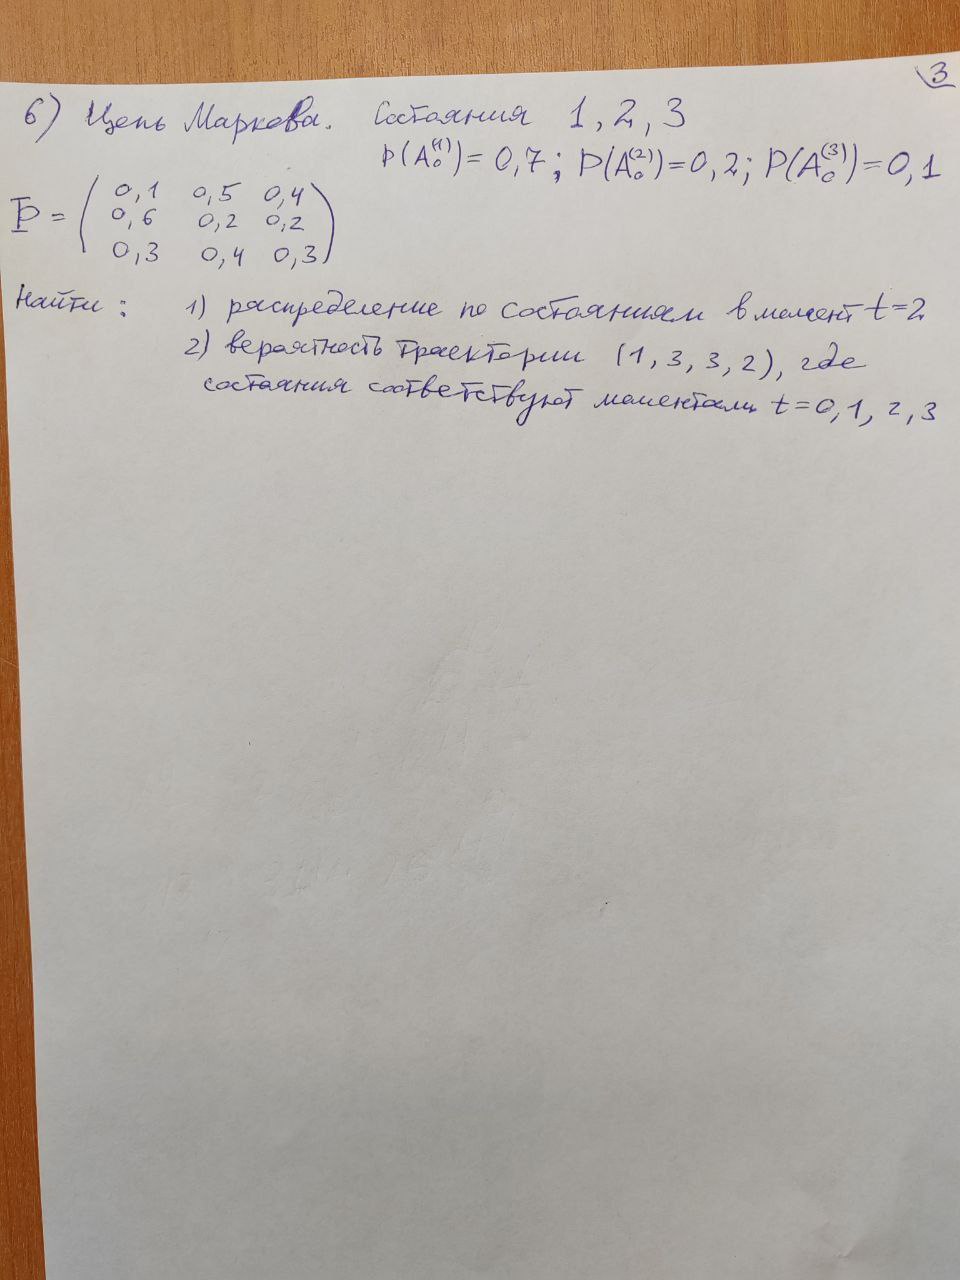 3
6) Цепь Маркова. Состояния 1, 2, 3
P(A₀⁽¹⁾) = 0,7; P(A₀⁽²⁾) = 0,2; P(A₀⁽³⁾) = 0,1
P = ( 0,1 0,5 0,4
0,6 0,2 0,2
0,3 0,4 0,3 )
Найти: 1) распределение по состояниям в момент t=2
2) вероятность траектории (1, 3, 3, 2), где
состояния соответствуют моментам t=0, 1, 2, 3